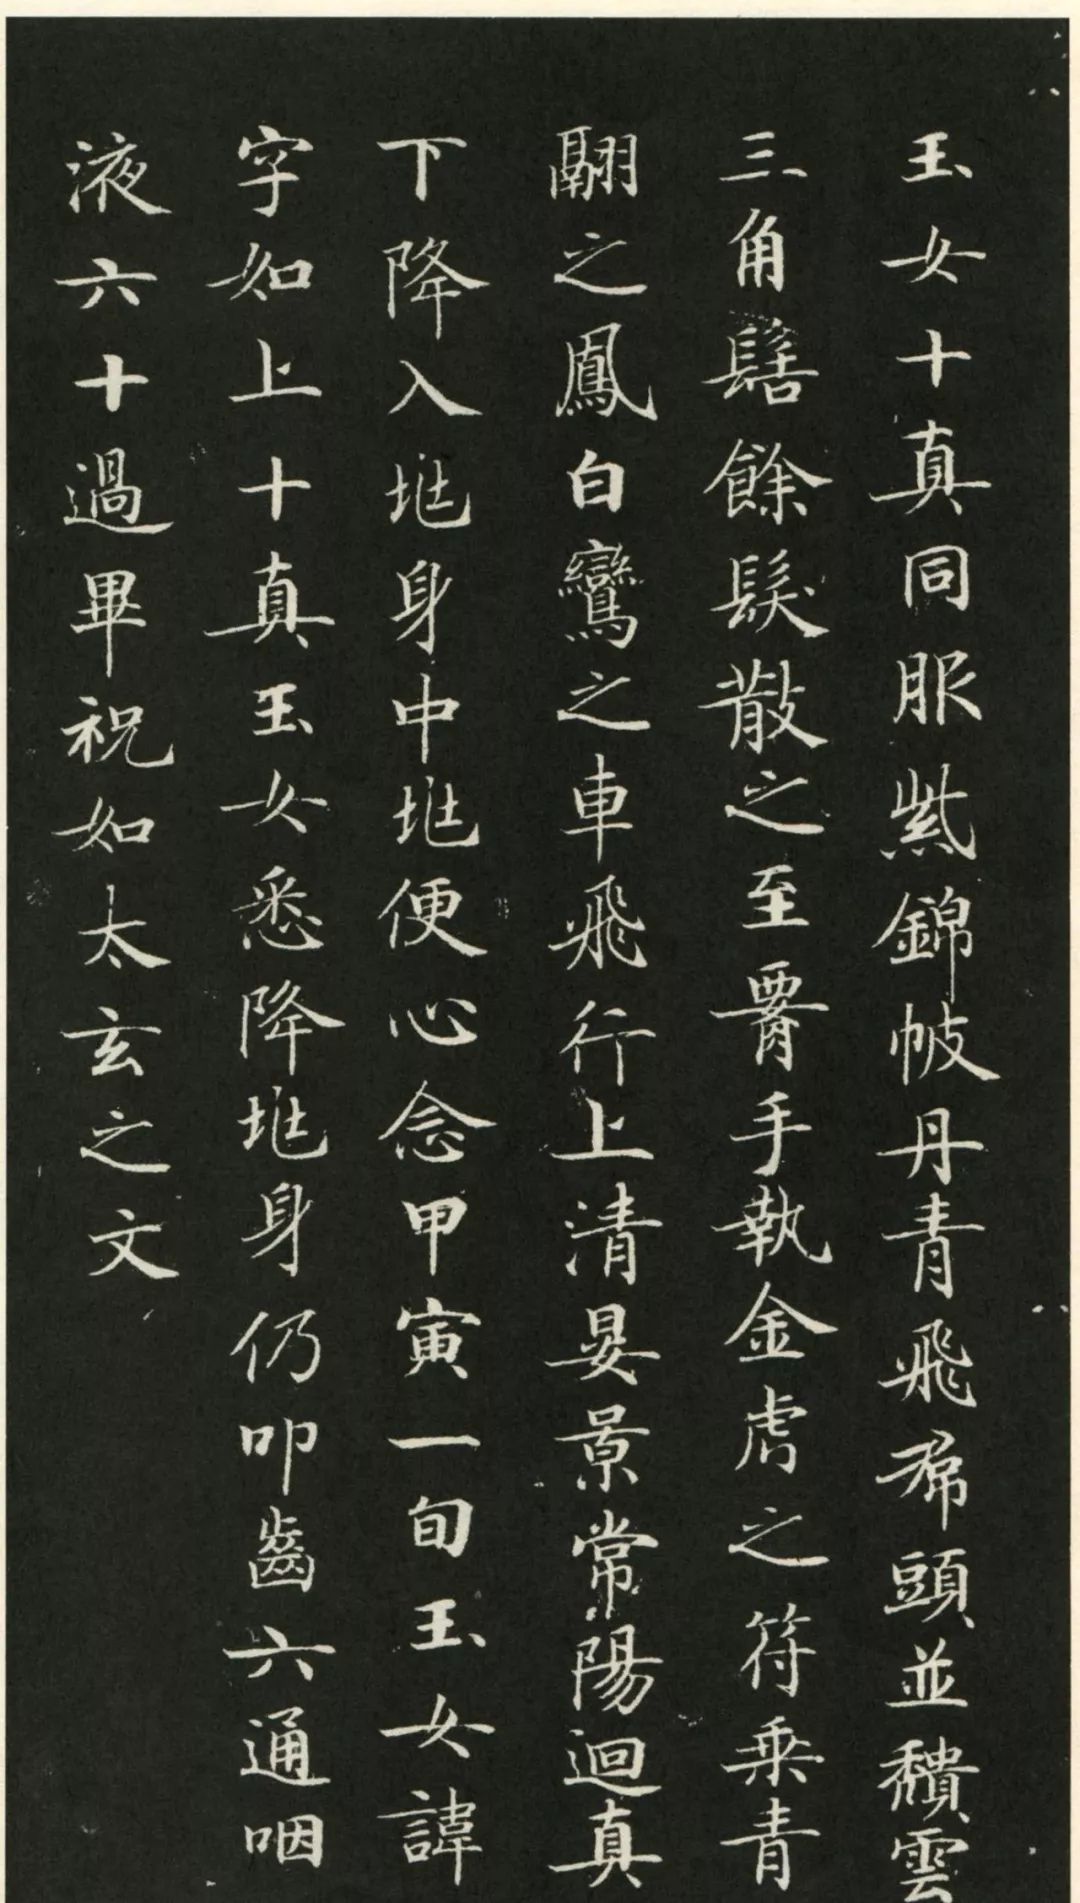 玉女十真同服紫錦帔丹青飛帬頭並積雲
三角髻餘髮散之至䯒手執金虎之符乗青
翮之鳳白鸞之車飛行上清晏景常陽迴真
下降入地身中地便心念甲寅一旬玉女諱
字如上十真玉女悉降地身仍叩齒六通咽
液六十過畢祝如太玄之文